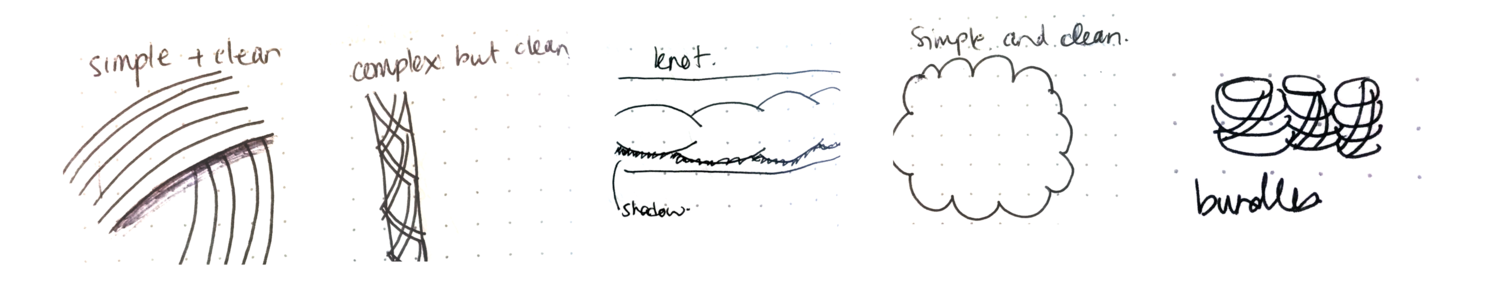 simple + clean
complex but clean
knot.
shadow.
Simple and clean.
bundles